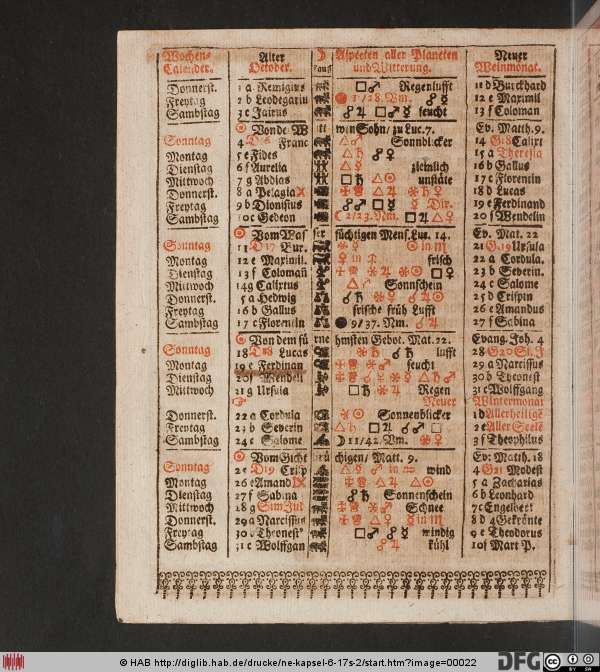 Wochen- Alter Aspecten aller Planeten Neuer
Calender. October. und Witterung. Weinmonat.
Donnerst. 1 a Remigius Regenlufft 11 d Burckhard
Freytag 2 b Leodegariu 1/28. Vm. 12 e Maximil
Sambstag 3 c Jairus feucht 13 f Coloman
Von de W itt wen Sohn/ zu Luc. 7. Ev. Matth. 9.
Sonntag 4 Franc Sonnblicker 14 Calixt
Montag 5 e Fides 15 a Theresia
Dienstag 6 f Aurelia ziemlich 16 b Gallus
Mittwoch 7 g Abdias unstäte 17 c Florentin
Donnerst. 8 a Pelagia 18 d Lucas
Freytag 9 b Dionisius Dir. 19 e Ferdinand
Sambstag 10 c Gedeon 2/23. Nm. 20 f Wendelin
Vom Was ser süchtigen Mens. Luc. 14. Ev. Mat. 22
Sonntag 11 D17 Bur. in 21 G19 Ursula
Montag 12 e Maximil. in frisch 22 a Cordula.
Dienstag 13 f Coloman 23 b Severin.
Mittwoch 14 g Calixtus Sonnschein 24 c Salome
Donnerst. 15 a Hedwig 25 d Crispin
Freytag 16 b Gallus frische früh Lufft 26 e Amandus
Sambstag 17 c Florentin 9/37. Nm. 27 f Sabina
Von dem fü rne hmsten Gebot. Mat. 22. Evang. Joh. 4
Sonntag 18 D18 Lucas lufft 28 G20 Si. J
Montag 19 e Ferdinan feucht 29 a Narcissus
Dienstag 20 f Wendeli 30 b Theonest
Mittwoch 21 g Ursula Regen 31 c Wolffgang
Neuer Wintermonat
Donnerst. 22 a Cordula Sonnenblicker 1 d Allerheilige
Freytag 23 b Severin 2 e Aller Seele
Sambstag 24 c Salome 11/42. Vm. 3 f Theophilus
Vom Gicht brü chigen/ Matt. 9. Ev. Matth. 18
Sonntag 25 D19 Crisp in wind 4 G21 Modest
Montag 26 e Amand 5 a Zacharias
Dienstag 27 f Sabina Sonnenschein 6 b Leonhard
Mittwoch 28 g Sim Jud Schnee 7 c Engelbert
Donnerst. 29 a Narcissus in 8 d 4 Gekrönte
Freytag 30 b Theonest windig 9 e Theodorus
Sambstag 31 c Wolffgan kühl 10 f Mart P.
© HAB http://diglib.hab.de/drucke/ne-kapsel-6-17s-2/start.htm?image=00022
DFG CC BY SA